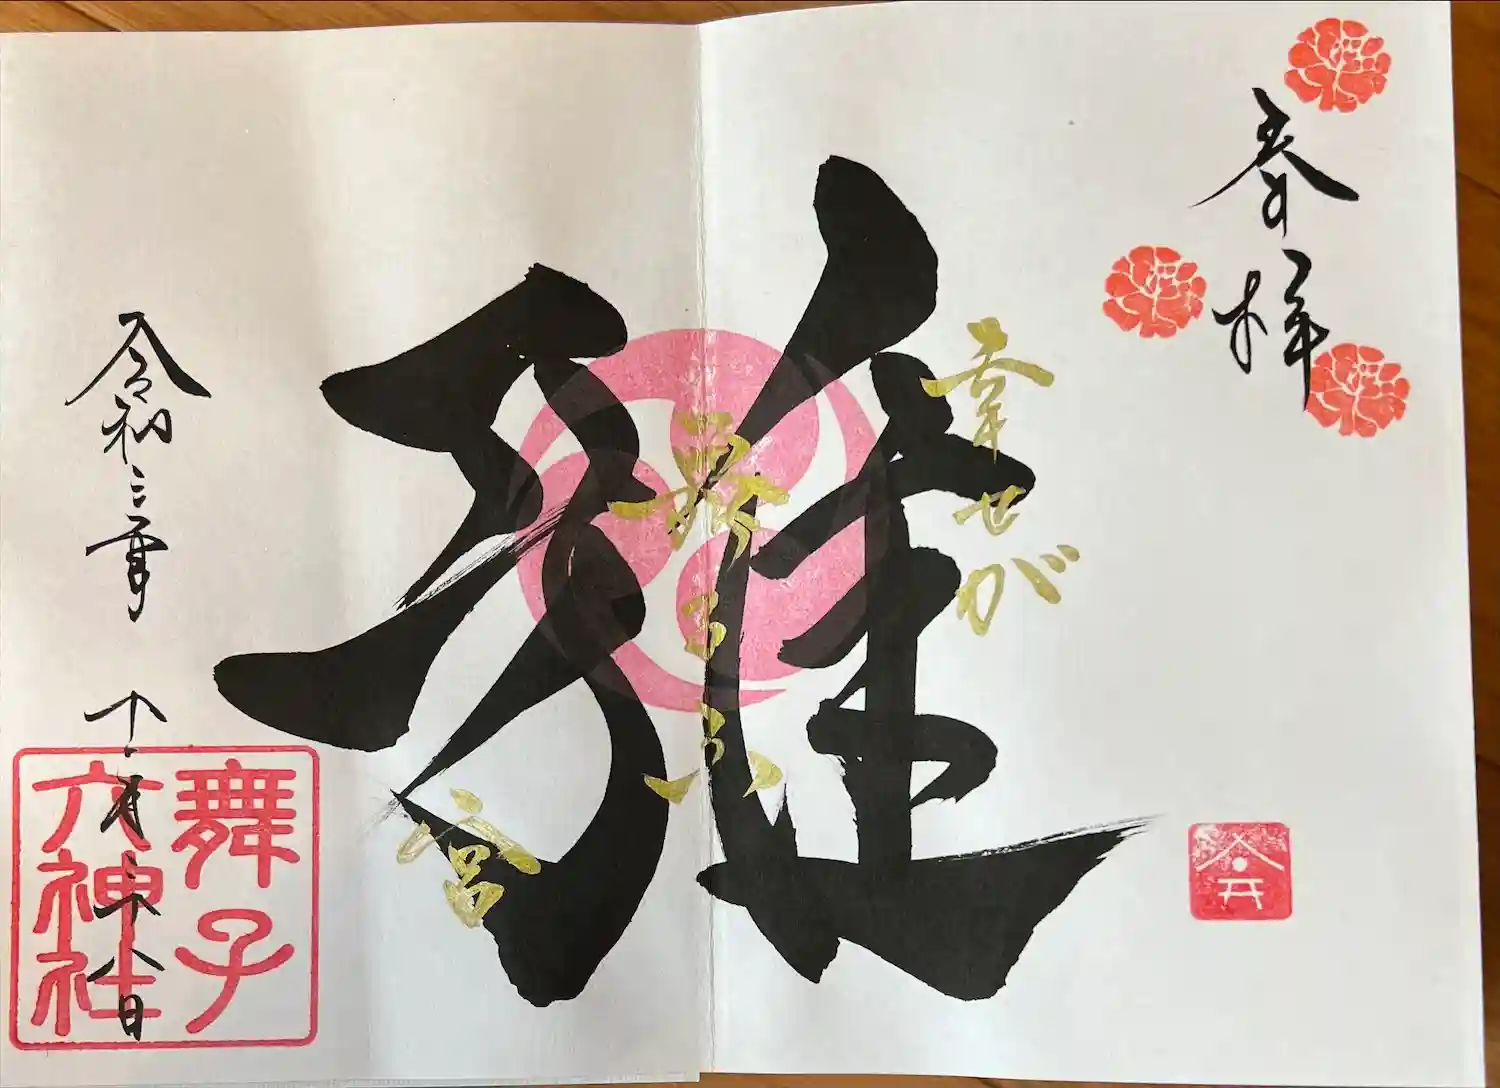 奉拝
幸せが
舞
宮
雅
令和三年 十一月二十八日
舞子
六神社